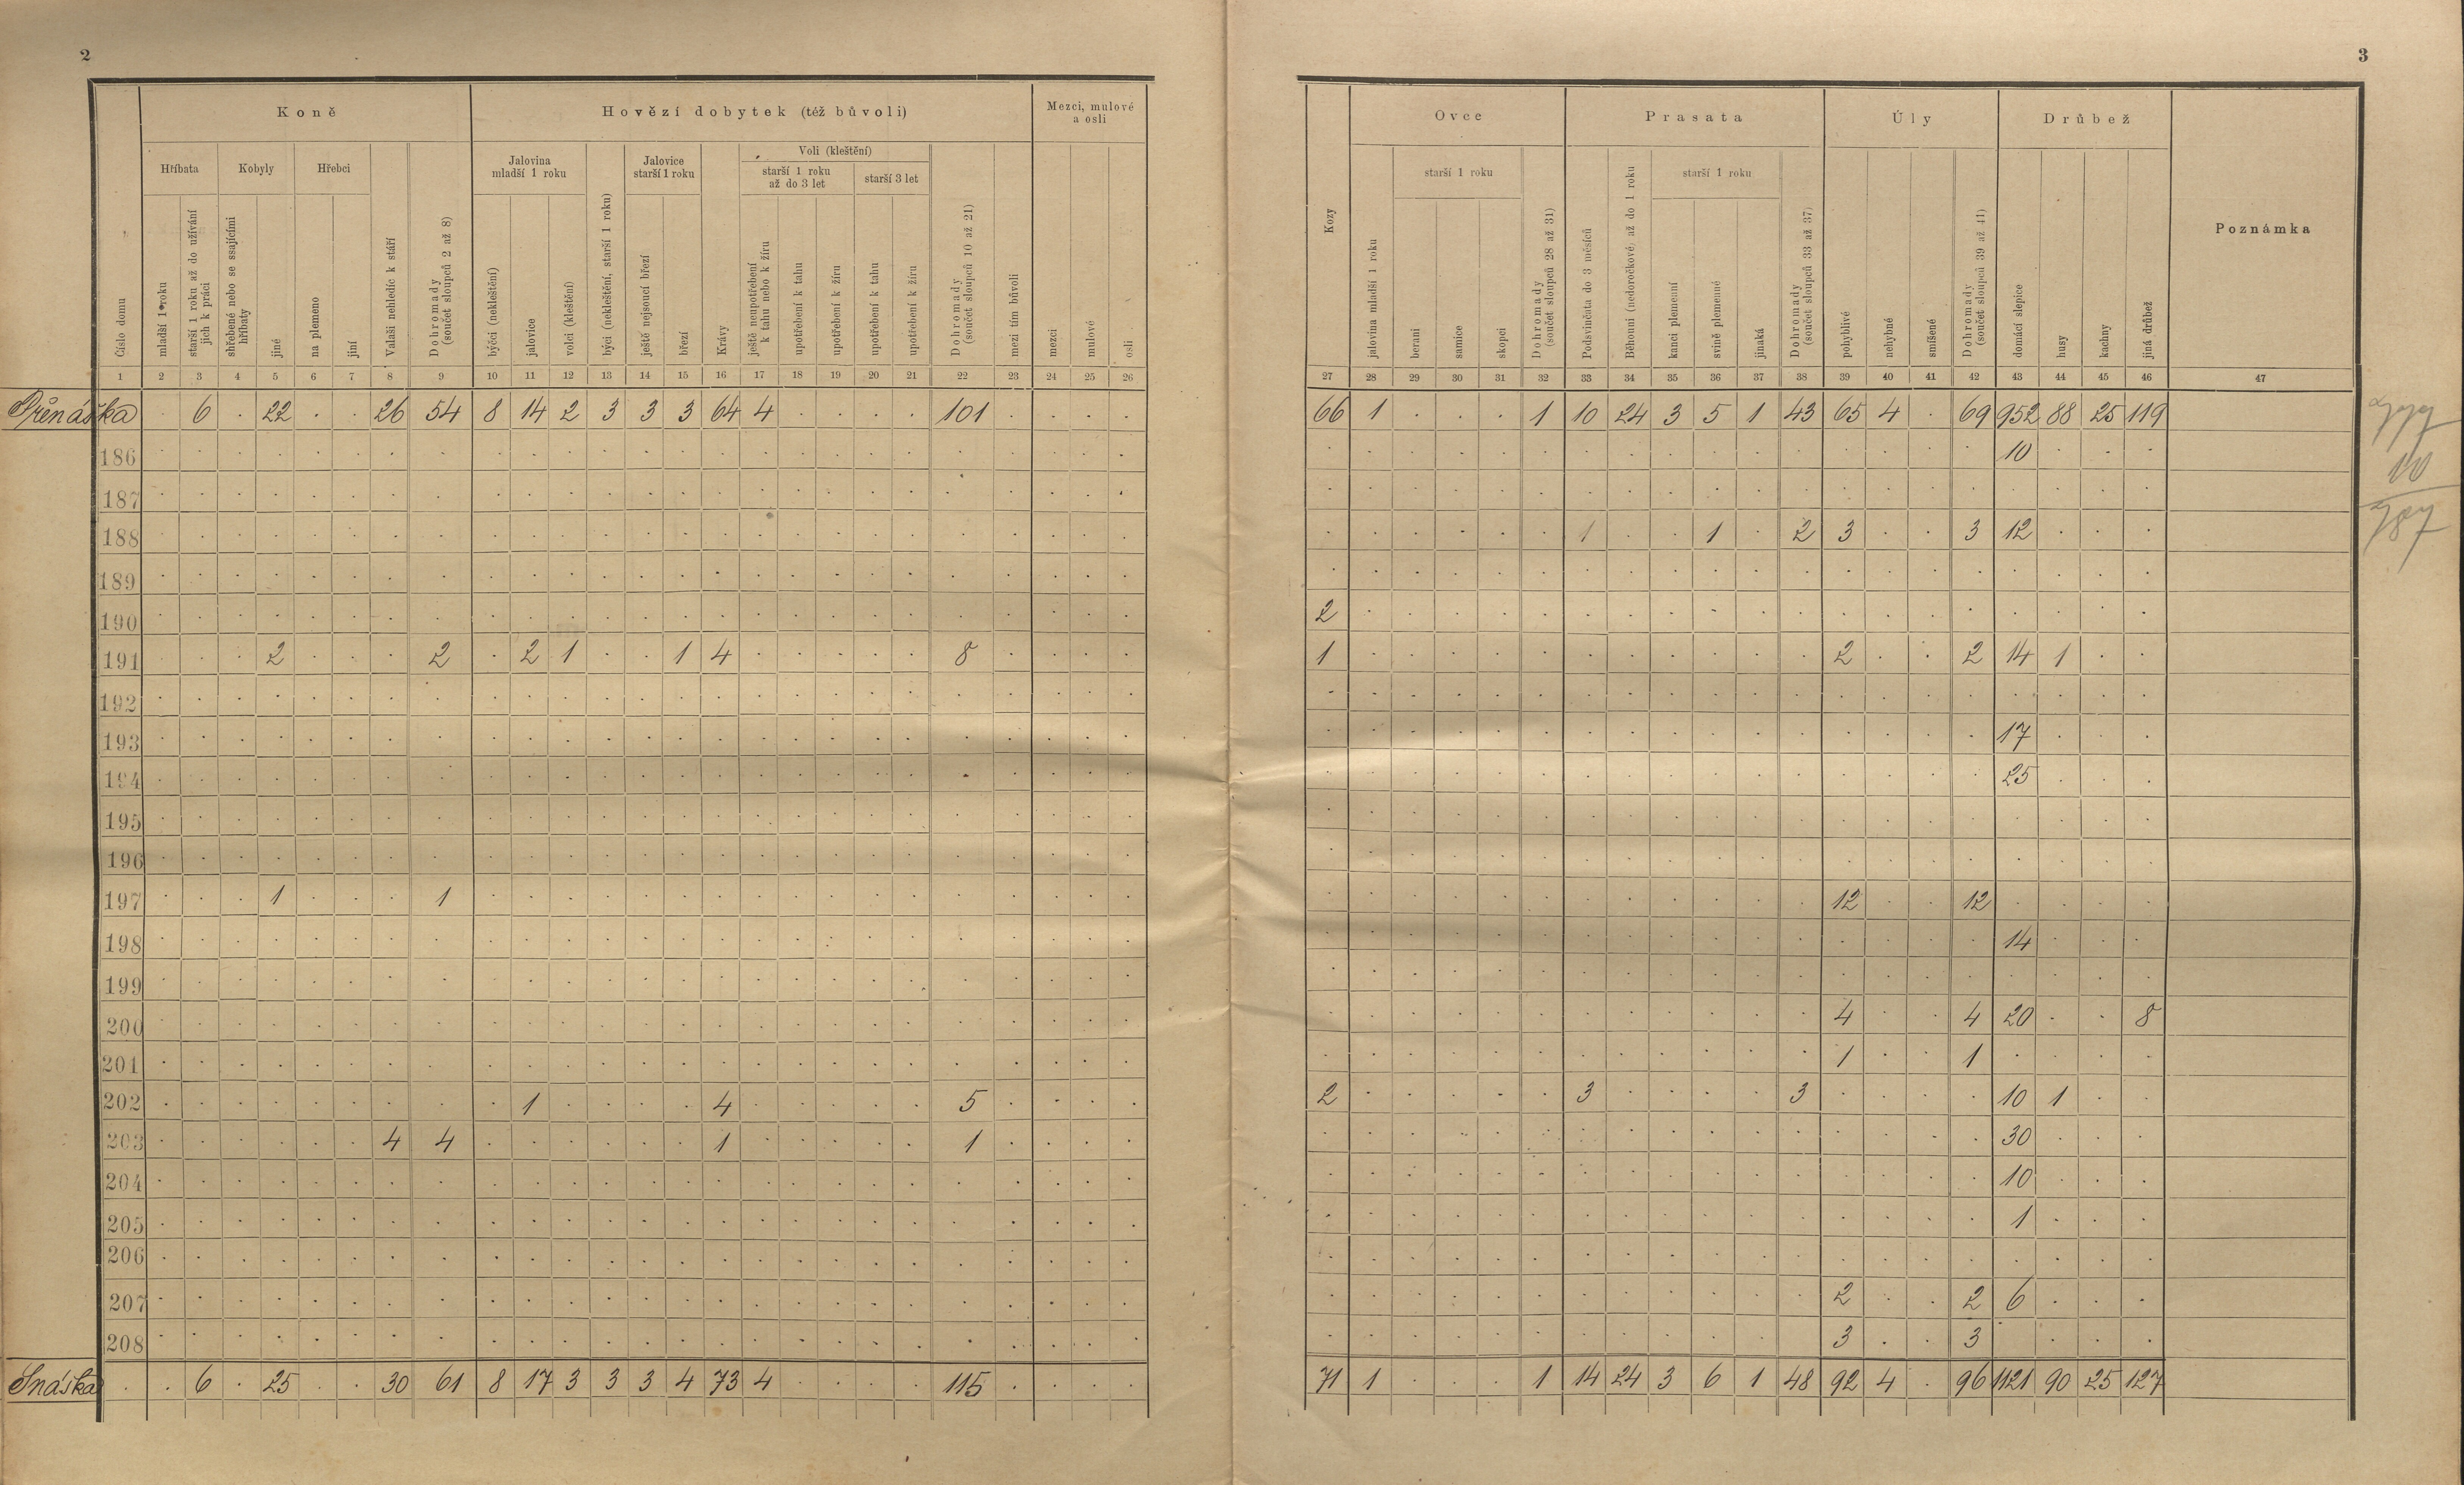 2
Koně
Hovězí dobytek (též bůvoli)
Mezci, mulové
a osli
Hříbata
Kobyly
Hřebci
Jalovina
mladší 1 roku
Jalovice
starší 1 roku
Voli (kleštění)
starší 1 roku
až do 3 let
starší 3 let
Číslo domu
mladší 1 roku
starší 1 roku až do užívání
jich k práci
shřebené nebo se ssajícími
hříbaty
jiné
na plemeno
jiní
Valaši nehledíc k stáří
Dohromady
(součet sloupců 2 až 8)
býčci (nekleštění)
jalovice
volci (kleštění)
býci (nekleštění, starší 1 roku)
ještě nejsoucí březí
březí
Krávy
ještě neupotřebení
k tahu nebo k žíru
upotřebení k tahu
upotřebení k žíru
upotřebení k tahu
upotřebení k žíru
Dohromady
(součet sloupců 10 až 21)
mezi tím bůvoli
mezci
mulové
osli
1 2 3 4 5 6 7 8 9 10 11 12 13 14 15 16 17 18 19 20 21 22 23 24 25 26
Přenáška . 6 . 22 . . 26 54 8 14 2 3 3 3 64 4 . . . . 101 . . . .
186 . . . . . . . . . . . . . . . . . . . . . . . . .
187 . . . . . . . . . . . . . . . . . . . . . . . . .
188 . . . . . . . . . . . . . . . . . . . . . . . . .
189 . . . . . . . . . . . . . . . . . . . . . . . . .
190 . . . . . . . . . . . . . . . . . . . . . . . . .
191 . . . 2 . . . 2 . 2 1 . . 1 4 . . . . . 8 . . . .
192 . . . . . . . . . . . . . . . . . . . . . . . . .
193 . . . . . . . . . . . . . . . . . . . . . . . . .
194 . . . . . . . . . . . . . . . . . . . . . . . . .
195 . . . . . . . . . . . . . . . . . . . . . . . . .
196 . . . . . . . . . . . . . . . . . . . . . . . . .
197 . . . 1 . . . 1 . . . . . . . . . . . . . . . . .
198 . . . . . . . . . . . . . . . . . . . . . . . . .
199 . . . . . . . . . . . . . . . . . . . . . . . . .
200 . . . . . . . . . . . . . . . . . . . . . . . . .
201 . . . . . . . . . . . . . . . . . . . . . . . . .
202 . . . . . . . . . 1 . . . . 4 . . . . . 5 . . . .
203 . . . . . . 4 4 . . . . . . 1 . . . . . 1 . . . .
204 . . . . . . . . . . . . . . . . . . . . . . . . .
205 . . . . . . . . . . . . . . . . . . . . . . . . .
206 . . . . . . . . . . . . . . . . . . . . . . . . .
207 . . . . . . . . . . . . . . . . . . . . . . . . .
208 . . . . . . . . . . . . . . . . . . . . . . . . .
Snáška . . 6 . 25 . . 30 61 8 17 3 3 3 4 73 4 . . . . 115 . . . .
3
Ovce
Prasata
Úly
Drůbež
Poznámka
starší 1 roku
starší 1 roku
Kozy
jalovina mladší 1 roku
berani
samice
skopci
Dohromady
(součet sloupců 28 až 31)
Podsvinčata do 3 měsíců
Běhouni (nedoročkové) až do 1 roku
kanci plemenní
svině plemenné
jinaká
Dohromady
(součet sloupců 33 až 37)
pohyblivé
nehybné
smíšené
Dohromady
(součet sloupců 39 až 41)
domácí slepice
husy
kachny
jiná drůbež
27 28 29 30 31 32 33 34 35 36 37 38 39 40 41 42 43 44 45 46 47
66 1 . . . 1 10 24 3 5 1 43 65 4 . 69 952 88 25 119
. . . . . . . . . . . . . . . . 10 . . .
. . . . . . . . . . . . . . . . . . . .
. . . . . . 1 . . 1 . 2 3 . . 3 12 . . .
. . . . . . . . . . . . . . . . . . . .
2 . . . . . . . . . . . . . . . . . . .
1 . . . . . . . . . . . 2 . . 2 14 1 . .
. . . . . . . . . . . . . . . . . . . .
. . . . . . . . . . . . . . . . 17 . . .
. . . . . . . . . . . . . . . . 25 . . .
. . . . . . . . . . . . . . . . . . . .
. . . . . . . . . . . . . . . . . . . .
. . . . . . . . . . . . 12 . . 12 . . . .
. . . . . . . . . . . . . . . . 14 . . .
. . . . . . . . . . . . . . . . . . . .
. . . . . . . . . . . . 4 . . 4 20 . . 8
. . . . . . . . . . . . 1 . . 1 . . . .
2 . . . . . 3 . . . . 3 . . . . 10 1 . .
. . . . . . . . . . . . . . . . 30 . . .
. . . . . . . . . . . . . . . . 10 . . .
. . . . . . . . . . . . . . . . 1 . . .
. . . . . . . . . . . . . . . . . . . .
. . . . . . . . . . . . 2 . . 2 6 . . .
. . . . . . . . . . . . 3 . . 3 . . .
71 1 . . . 1 14 24 3 6 1 48 92 4 . 96 1121 90 25 127
10
787